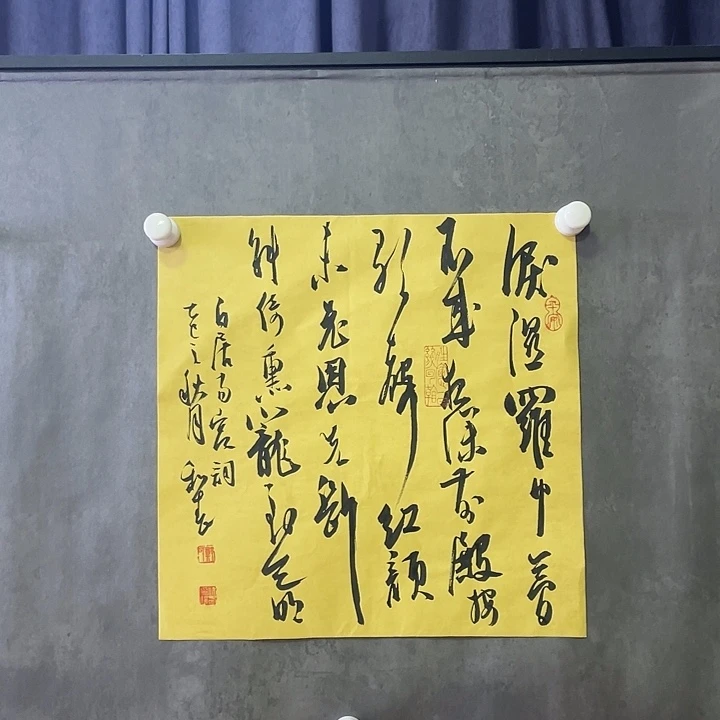 淚濕羅巾夢
不成夜深前殿按
歌聲紅顏
未老恩先斷
斜倚熏籠坐到明
白居易宮詞
秋月